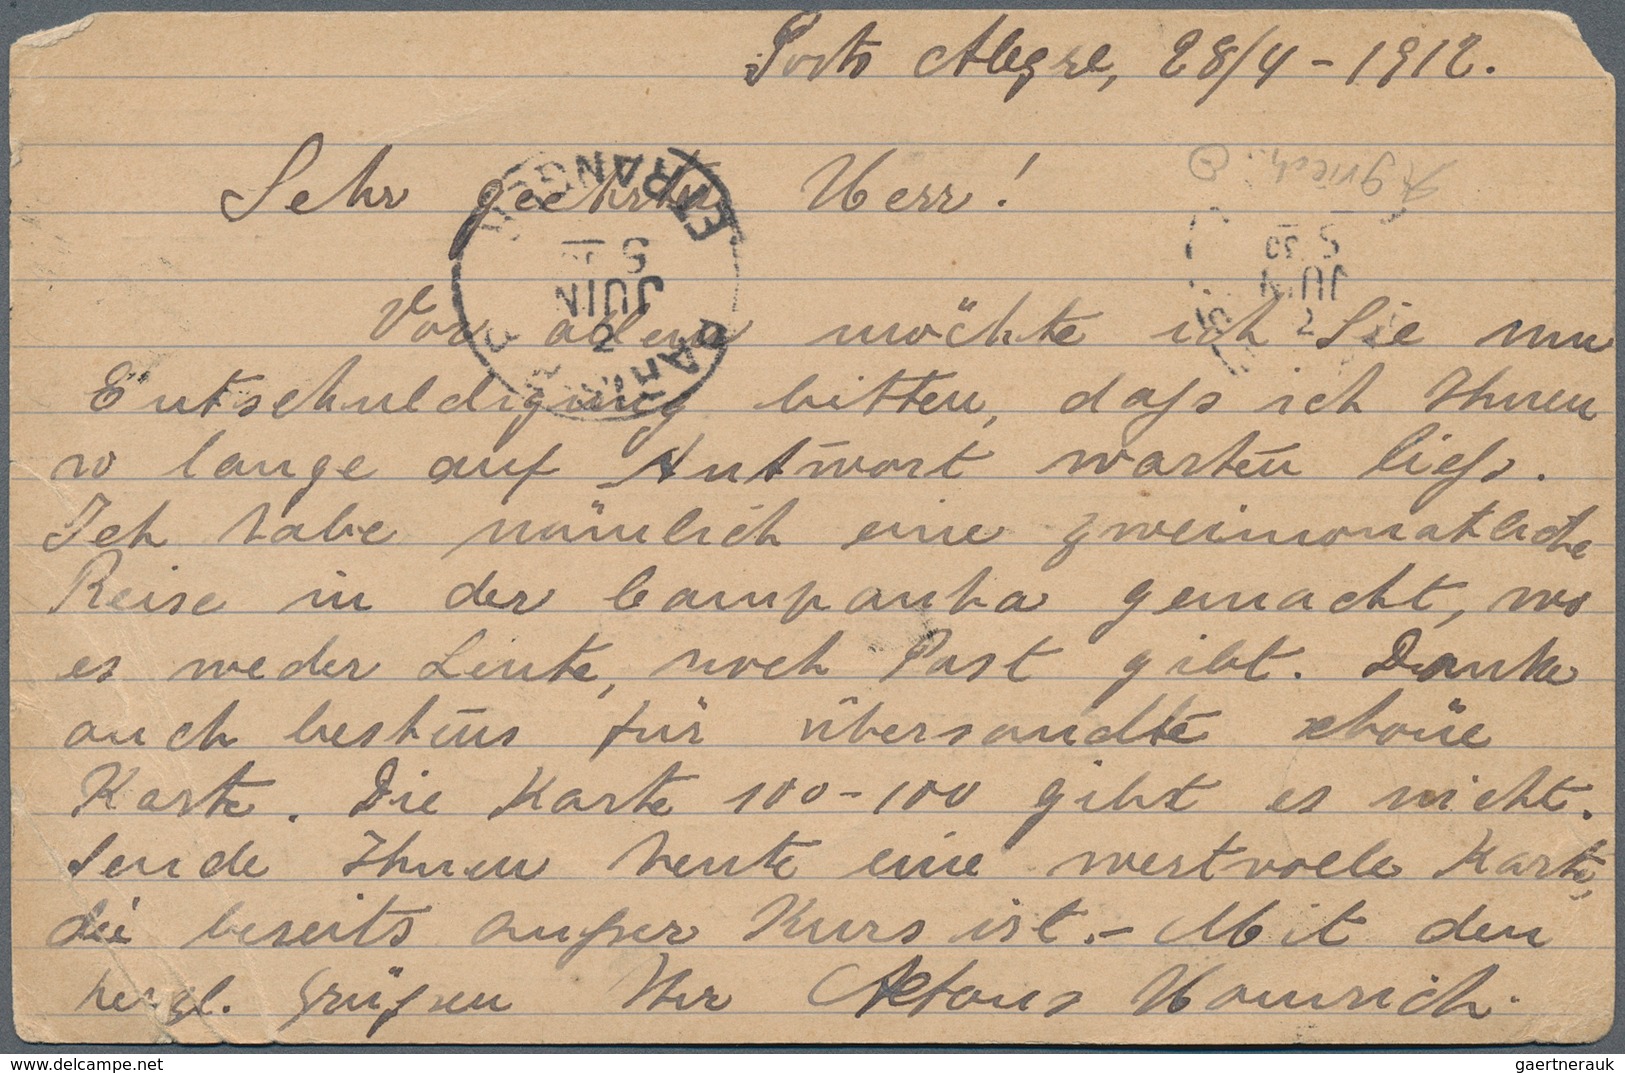 Porto Alegre, 28/4 - 1912.
Sehr geehrter Herr!
Vor allem möchte ich Sie um
Entschuldigung bitten, dass ich Ihnen
so lange auf Antwort warten liess.
Ich habe nämlich eine zweimonatliche
Reise in der Campanha gemacht, wo
es weder Leute, noch Post gibt. Danke
auch bestens für übersandte schöne
Karte. Die Karte 100-100 gibt es nicht.
Sende Ihnen heute eine wertvolle Karte,
die bereits ausser Kurs ist. - Mit den
herzl. Grüssen Ihr Alfons
ETRANGER
5
JUIN
PARIS
5 30
JUIN
© www.delcampe.net
gaertnerauk